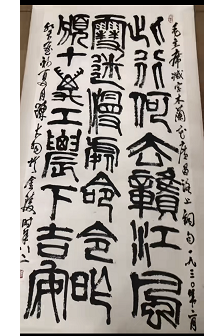 毛主席減字木蘭花廣昌路上詞句一九三〇年二月
此行何去贛江風
雪迷漫處命令昨
頒十萬工農下吉安
夏月 於金陵時年八二